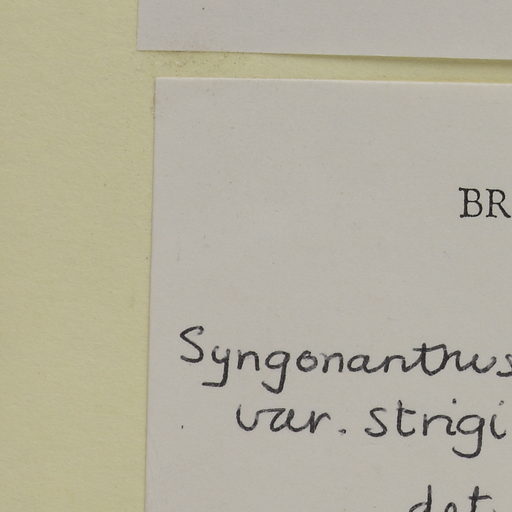 BR
Syngonanthus
var. strigi
det.